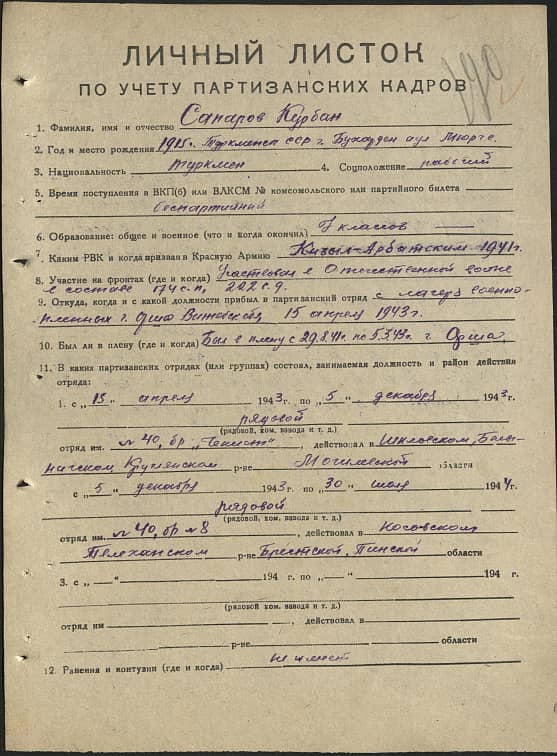 ЛИЧНЫЙ ЛИСТОК
ПО УЧЕТУ ПАРТИЗАНСКИХ КАДРОВ
190
1. Фамилия, имя и отчество Сапаров Курбан
2. Год и место рождения 1915г. Туркменск ССР г. Бухарден аул Мюрче.
3. Национальность туркмен 4. Соцположение рабочий
5. Время поступления в ВКП(б) или ВЛКСМ № комсомольского или партийного билета
беспартийный
6. Образование: общее и военное (что и когда окончил) 7 классов
7. Каким РВК и когда призван в Красную Армию Кизыл-Арватским 1941г.
8. Участие на фронтах (где и когда) Участвовал в Отечественной войне
в составе 174 с.п.
9. Откуда, когда и с какой должности прибыл в партизанский отряд с лагеря военно-
пленных г. Орша 15 апреля 1943г.
10. Был ли в плену (где и когда) Был в плену с 29.8.41г. по 5.3.43г. г. Орша,
11. В каких партизанских отрядах (или группах) состоял, занимаемая должность и район действия
отряда:
1. с „15" апреля 1943г. по „5" декабря 1943г.
рядовой
(рядовой, ком. взвода и т. д.)
отряд им. №40, бр "Чекист", действовал в Шкловском, Белы-
ничском Круглянском р-не Могилевской области
с „5" декабря 1943г. по „30" июля 1944г.
рядовой
(рядовой, ком. взвода и т. д.)
отряд им. №40, бр №8, действовал в Косовском
Телеханском р-не Брестской, Пинской области
3. с „ " 194 г. по „ " 194 г.
(рядовой, ком. взвода и т. д.)
отряд им , действовал в
р-не области
12. Ранения и контузии (где и когда) не имеет